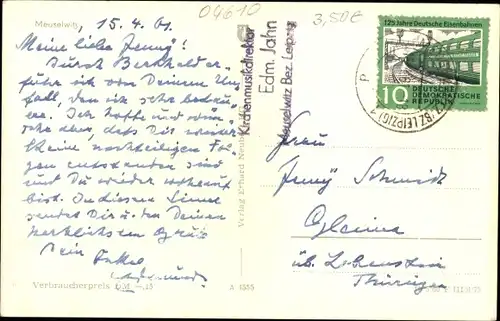 04610
3,50€
Meuselwitz, 15. 4. 61.
Meine liebe Jenny!
Durch Berkholder
fuhr ich von Deinem Un-
fall, den ich sehr bedau-
re. Ich hoffe und wün-
sche
keine nachteiligen Fol-
gen entstanden sind
und Du wieder wohlauf
bist. In diesem Sinne
sendet Dir u. den Deinen
herzlichsten Gruß
Dein Onkel
Verbraucherpreis DM -,15
A 1555
Verlag Erhard Neubert
Kirchenmusikdirektor
Edm. Jahn
Meuselwitz Bez. Leipzig
125 Jahre Deutsche Eisenbahnen
10 DEUTSCHE
DEMOKRATISCHE
REPUBLIK
(BZ. LEIPZIG)
Frau
Jenny Schmidt
Gleima
üb. Lobenstein
Thüringen